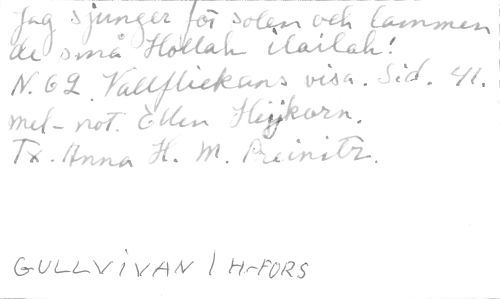 Jag sjunger för solen och lammen
de små Hollah ilailah!
N. 62. Vallflickans visa. Sid. 41.
mel-not. Ellen Heijkorn.
Tx. Anna H. M. Preinitz.
GULLVIVAN / H-FORS